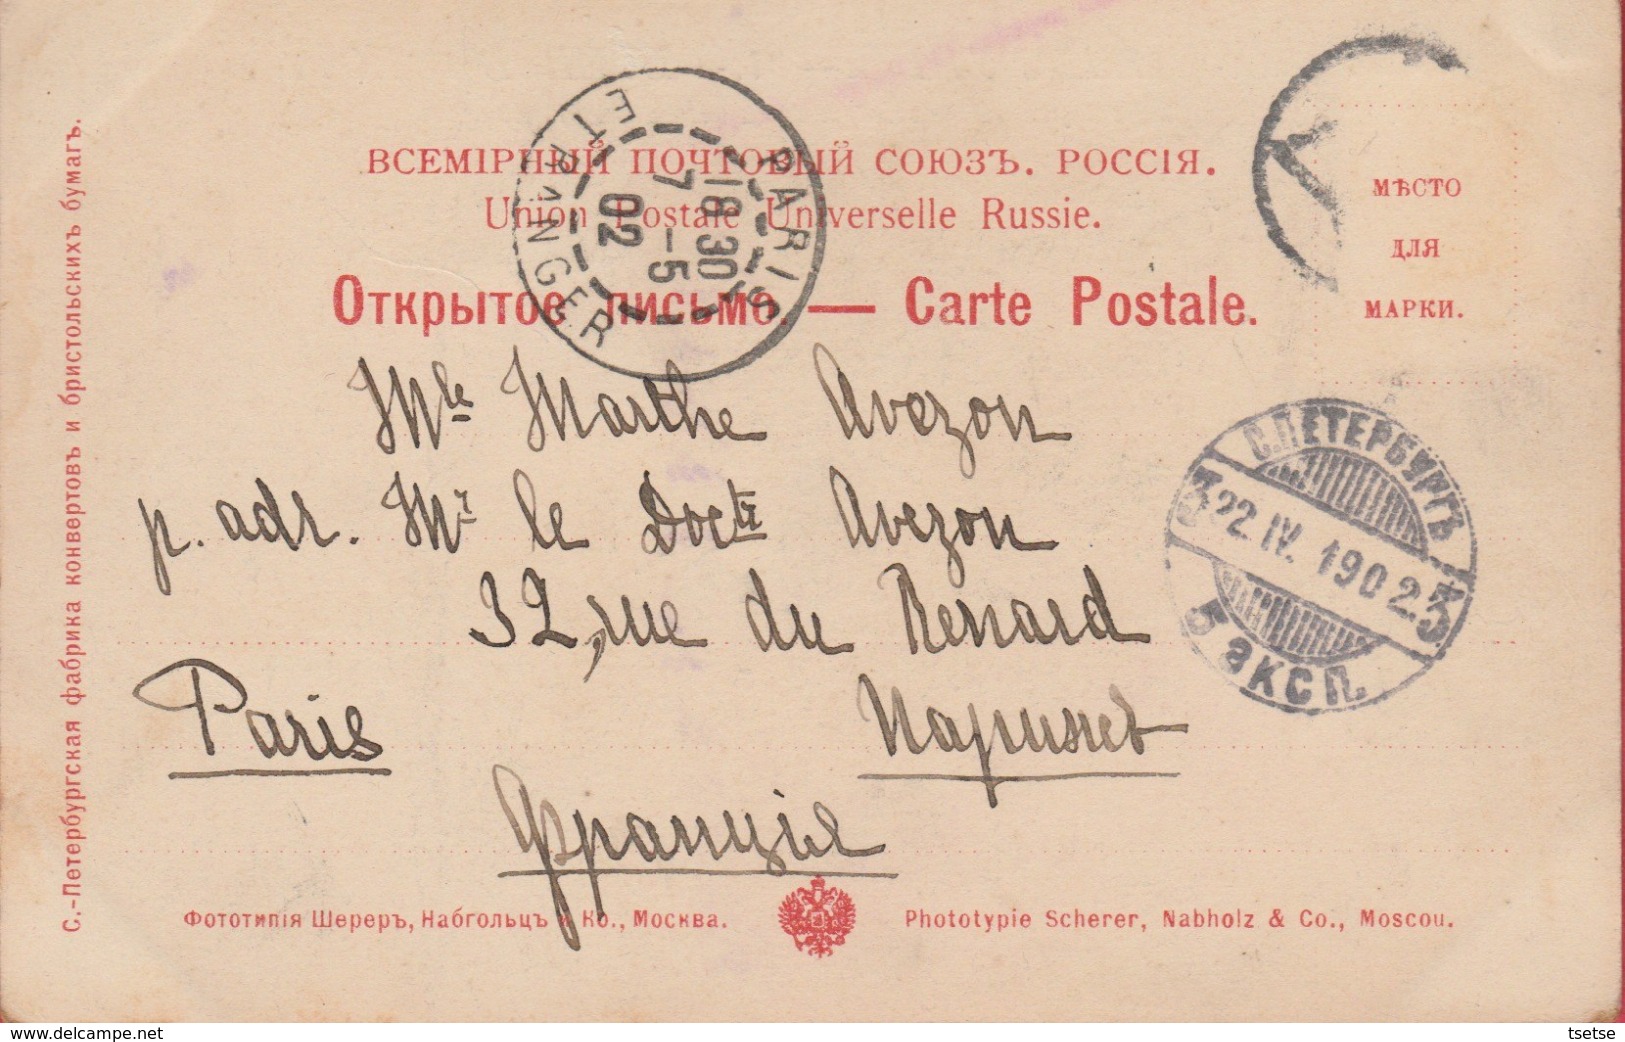 ВСЕМІРНЫЙ ПОЧТОВЫЙ СОЮЗЪ. РОССІЯ.
Union Postale Universelle Russie.
Открытое письмо. — Carte Postale.
МѢСТО
ДЛЯ
МАРКИ.
PARIS
18 30
7 -5
02
ETRANGER
Mle Marthe Avezon
p. adr. Mr le Doctr Avezon
32, rue du Renard
Paris
Парижъ
Франція
С.ПЕТЕРБУРГЪ
3 22 IV. 1902. 3
5 ЭКСП.
С.-Петербургская фабрика конвертовъ и бристольскихъ бумагъ.
Фототипія Шереръ, Набгольцъ и Ко., Москва.
Phototypie Scherer, Nabholz & Co., Moscou.
www.delcampe.net
tsetse